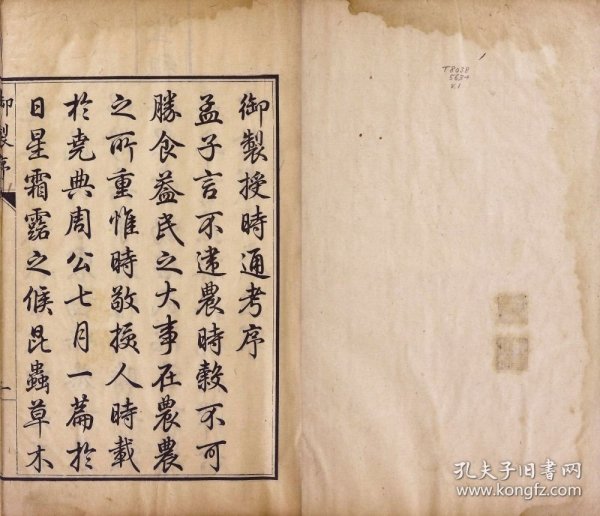 T8038
5634
v.1
御製授時通考序
孟子言不違農時穀不可
勝食益民之大事在農農
之所重惟時敬授人時載
於堯典周公七月一篇於
日星霜露之候昆蟲草木
御製序
一
孔夫子旧書网
www.kongfz.com